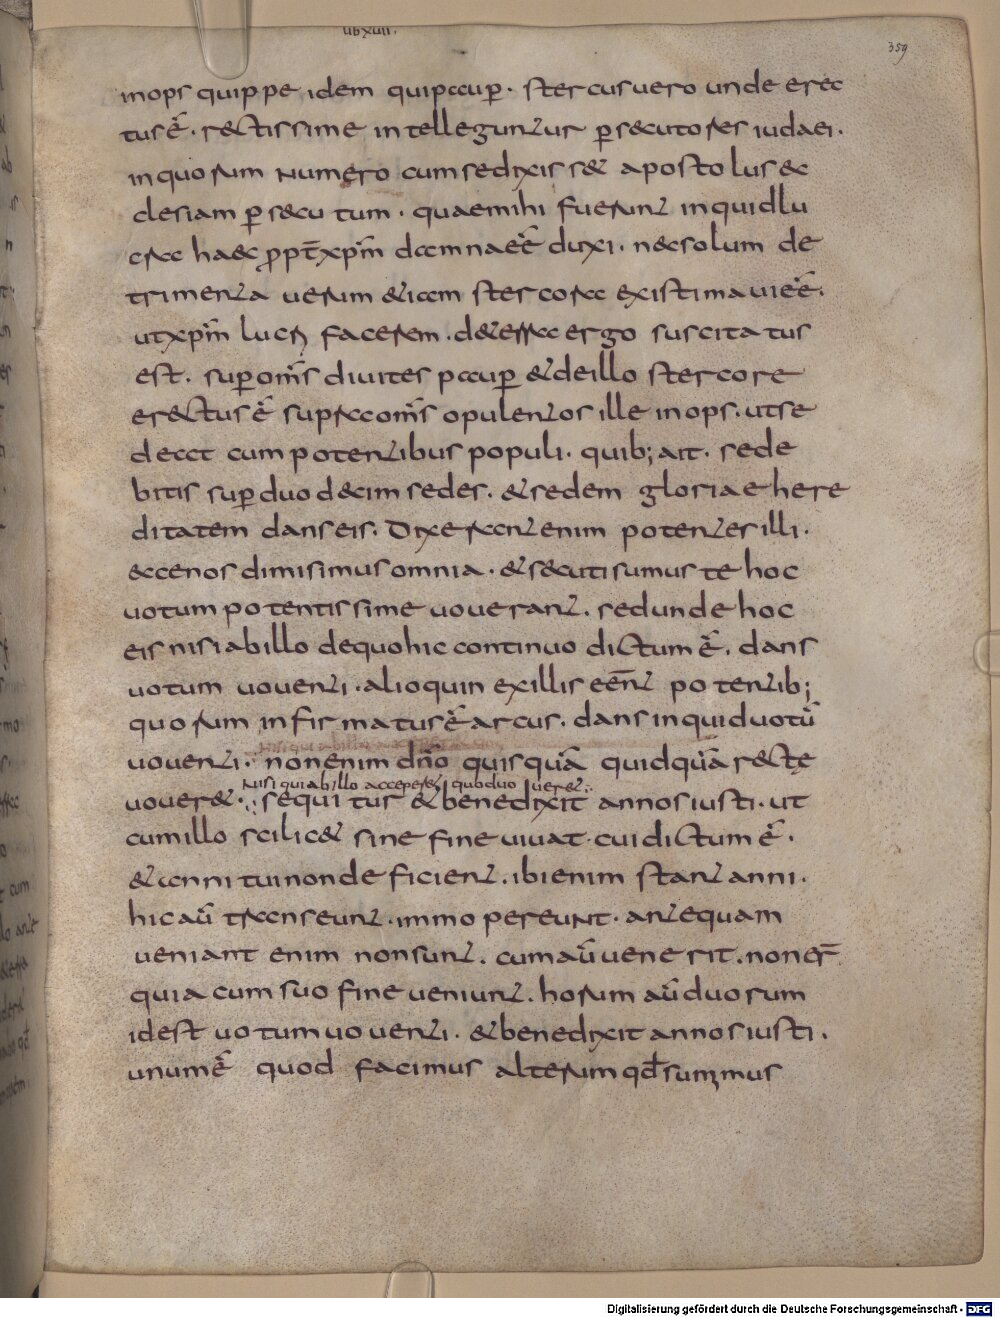 ub xuii.
359
inops quippe idem quipauꝑ. stercus uero unde erec
tus ē̃. rectissime intelleguntur ꝑsecutores iudaei.
inquorum numero cum sedixisset apostolus ec
clesiam ꝑsecutum. quae mihi fuerunt inquid lu
cra haec ꝓpt̄ xp̄m damna eē̃ duxi. necsolum de
trimenta uerum etiam stercora existimaui eē̃.
ut xp̄m lucri facerem. deterra ergo suscitatus
est. suꝑ om̄s diuites pauꝑ et deillo stercore
erectus ē̃ supra om̄s opulentos ille inops. ut se
deat cum potentibus populi. quib; ait. sede
bitis suꝑ duodecim sedes. et sedem gloriae here
ditatem dans eis. Dixerant enim potentes illi.
ecce nos dimisimus omnia. et secuti sumus te hoc
uotum potentissime uouerant. sed unde hoc
eis nisi abillo dequo hic continuo dictum ē̃. dans
uotum uouenti. alioquin exillis eēnt potentib;
quorum infirmatus ē̃ arcus. dans inquid uotū
uouenti. non enim dn̄o quisquā quidquā recte
nisi qui abillo acceperet quod uoueret.
uoueret. sequitur et benedixit annos iusti. ut
cum illo scilicet sine fine uiuat. cui dictum ē̃.
et anni tui non deficient. ibi enim stant anni.
hic aū transeunt. immo pereunt. antequam
ueniant enim non sunt. cum aū uenerit. non er̄
quia cum suo fine ueniunt. horum aū duorum
idest uotum uouenti. et benedixit annos iusti.
unum ē̃ quod facimus alterum qd̄ sumimus
Digitalisierung gefördert durch die Deutsche Forschungsgemeinschaft - DFG